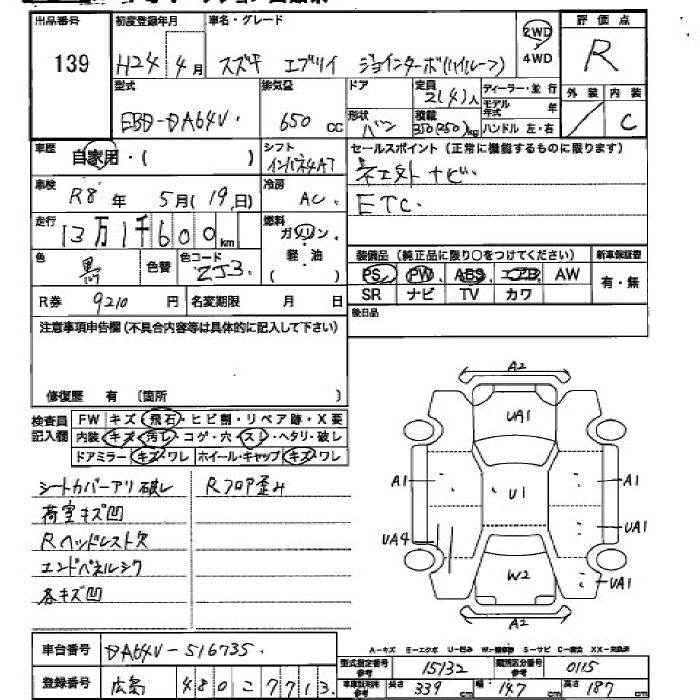 出品番号
139
初度登録年月
H24年4月
車名・グレード
スズキ エブリイ ジョインターボ(ハイルーフ)
2WD
4WD
評価点
R
型式
EBD-DA64V
排気量
650 cc
ドア
形状
バン
定員
2(4)人
積載
350(250)kg
ディーラー・並行
モデル年式 年
ハンドル 左・右
外装 内装
/ C
車歴
自家用・( )
シフト
インパネ4AT
セールスポイント(正常に機能するものに限ります)
社外ナビ
ETC.
車検
R8年5月(19日)
冷房
AC
走行
13万1千600km
燃料
ガソリン
軽・油
色
黒
色替
色コード
ZJ3
装備品(純正品に限り○をつけてください)
新車保証書
PS PW ABS エアB AW
SR ナビ TV カワ
有・無
R券 9210円
名変期限 月 日
後日品
注意事項申告欄(不具合内容等は具体的に記入して下さい)
修復歴 有 〔箇所 〕
検査員記入欄
FW キズ・飛石・ヒビ割・リペア跡・X要
内装・キズ・汚レ・コゲ・穴・スレ・ヘタリ・破レ
ドアミラー キズ・ワレ ホイール・キャップ キズ・ワレ
シートカバーアリ破レ
Rフロア歪み
荷室キズ凹
Rヘッドレスト欠
エンドパネルシワ
各キズ凹
A2
UA1
A1
U1
A1
UA4
UA1
W2
UA1
A2
車台番号
DA64V-516735
登録番号
広島 480 に 7713
A-キズ E-エクボ U-凹み
型式指定番号
参考
15132
類別区分番号
参考
0115
長さ 339 cm
幅 147 cm
高さ 187 cm